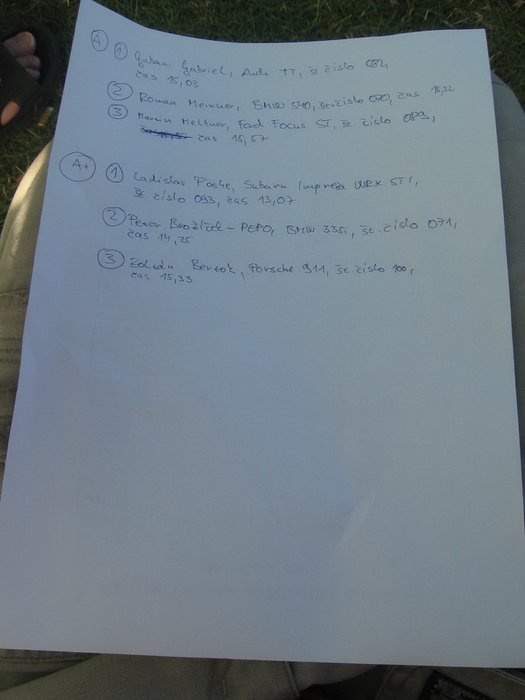 A 1 Gabriel, Audi TT, št. číslo 082,
čas 15,03
2 Roman Meixner, BMW 540, št. číslo 070, čas 15,22
3 Martin Meltzer, Ford Focus ST, št. číslo 089,
čas 15,57
A+ 1 Ladislav Poche, Subaru Impreza WRX STI,
št. číslo 093, čas 13,07
2 Peter Brožíček - PEPO, BMW 335i, št. číslo 071,
čas 14,25
3 Porsche 911, št. číslo 100,
čas 15,33